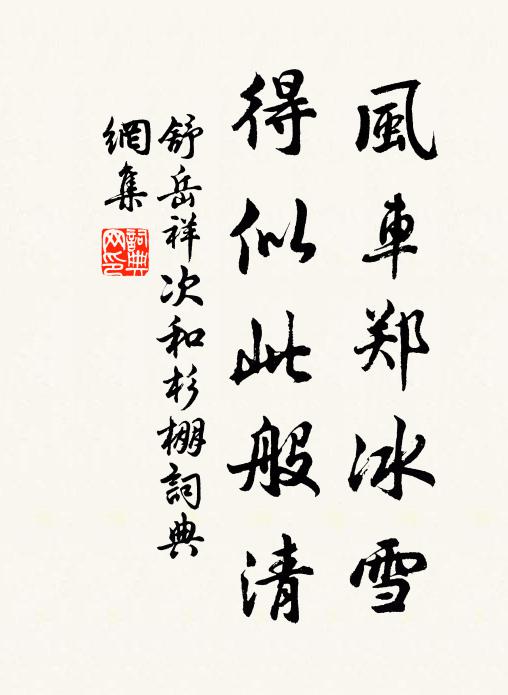 風車郑冰雪
得似此般清
舒岳祥次和杉棚詞典
網集
詞典网印